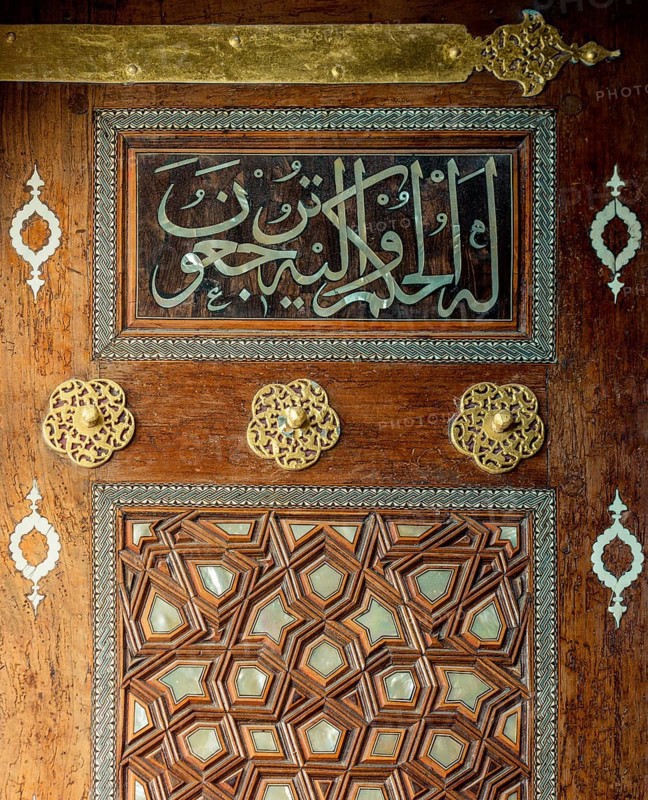 له الحكم واليه ترجعون